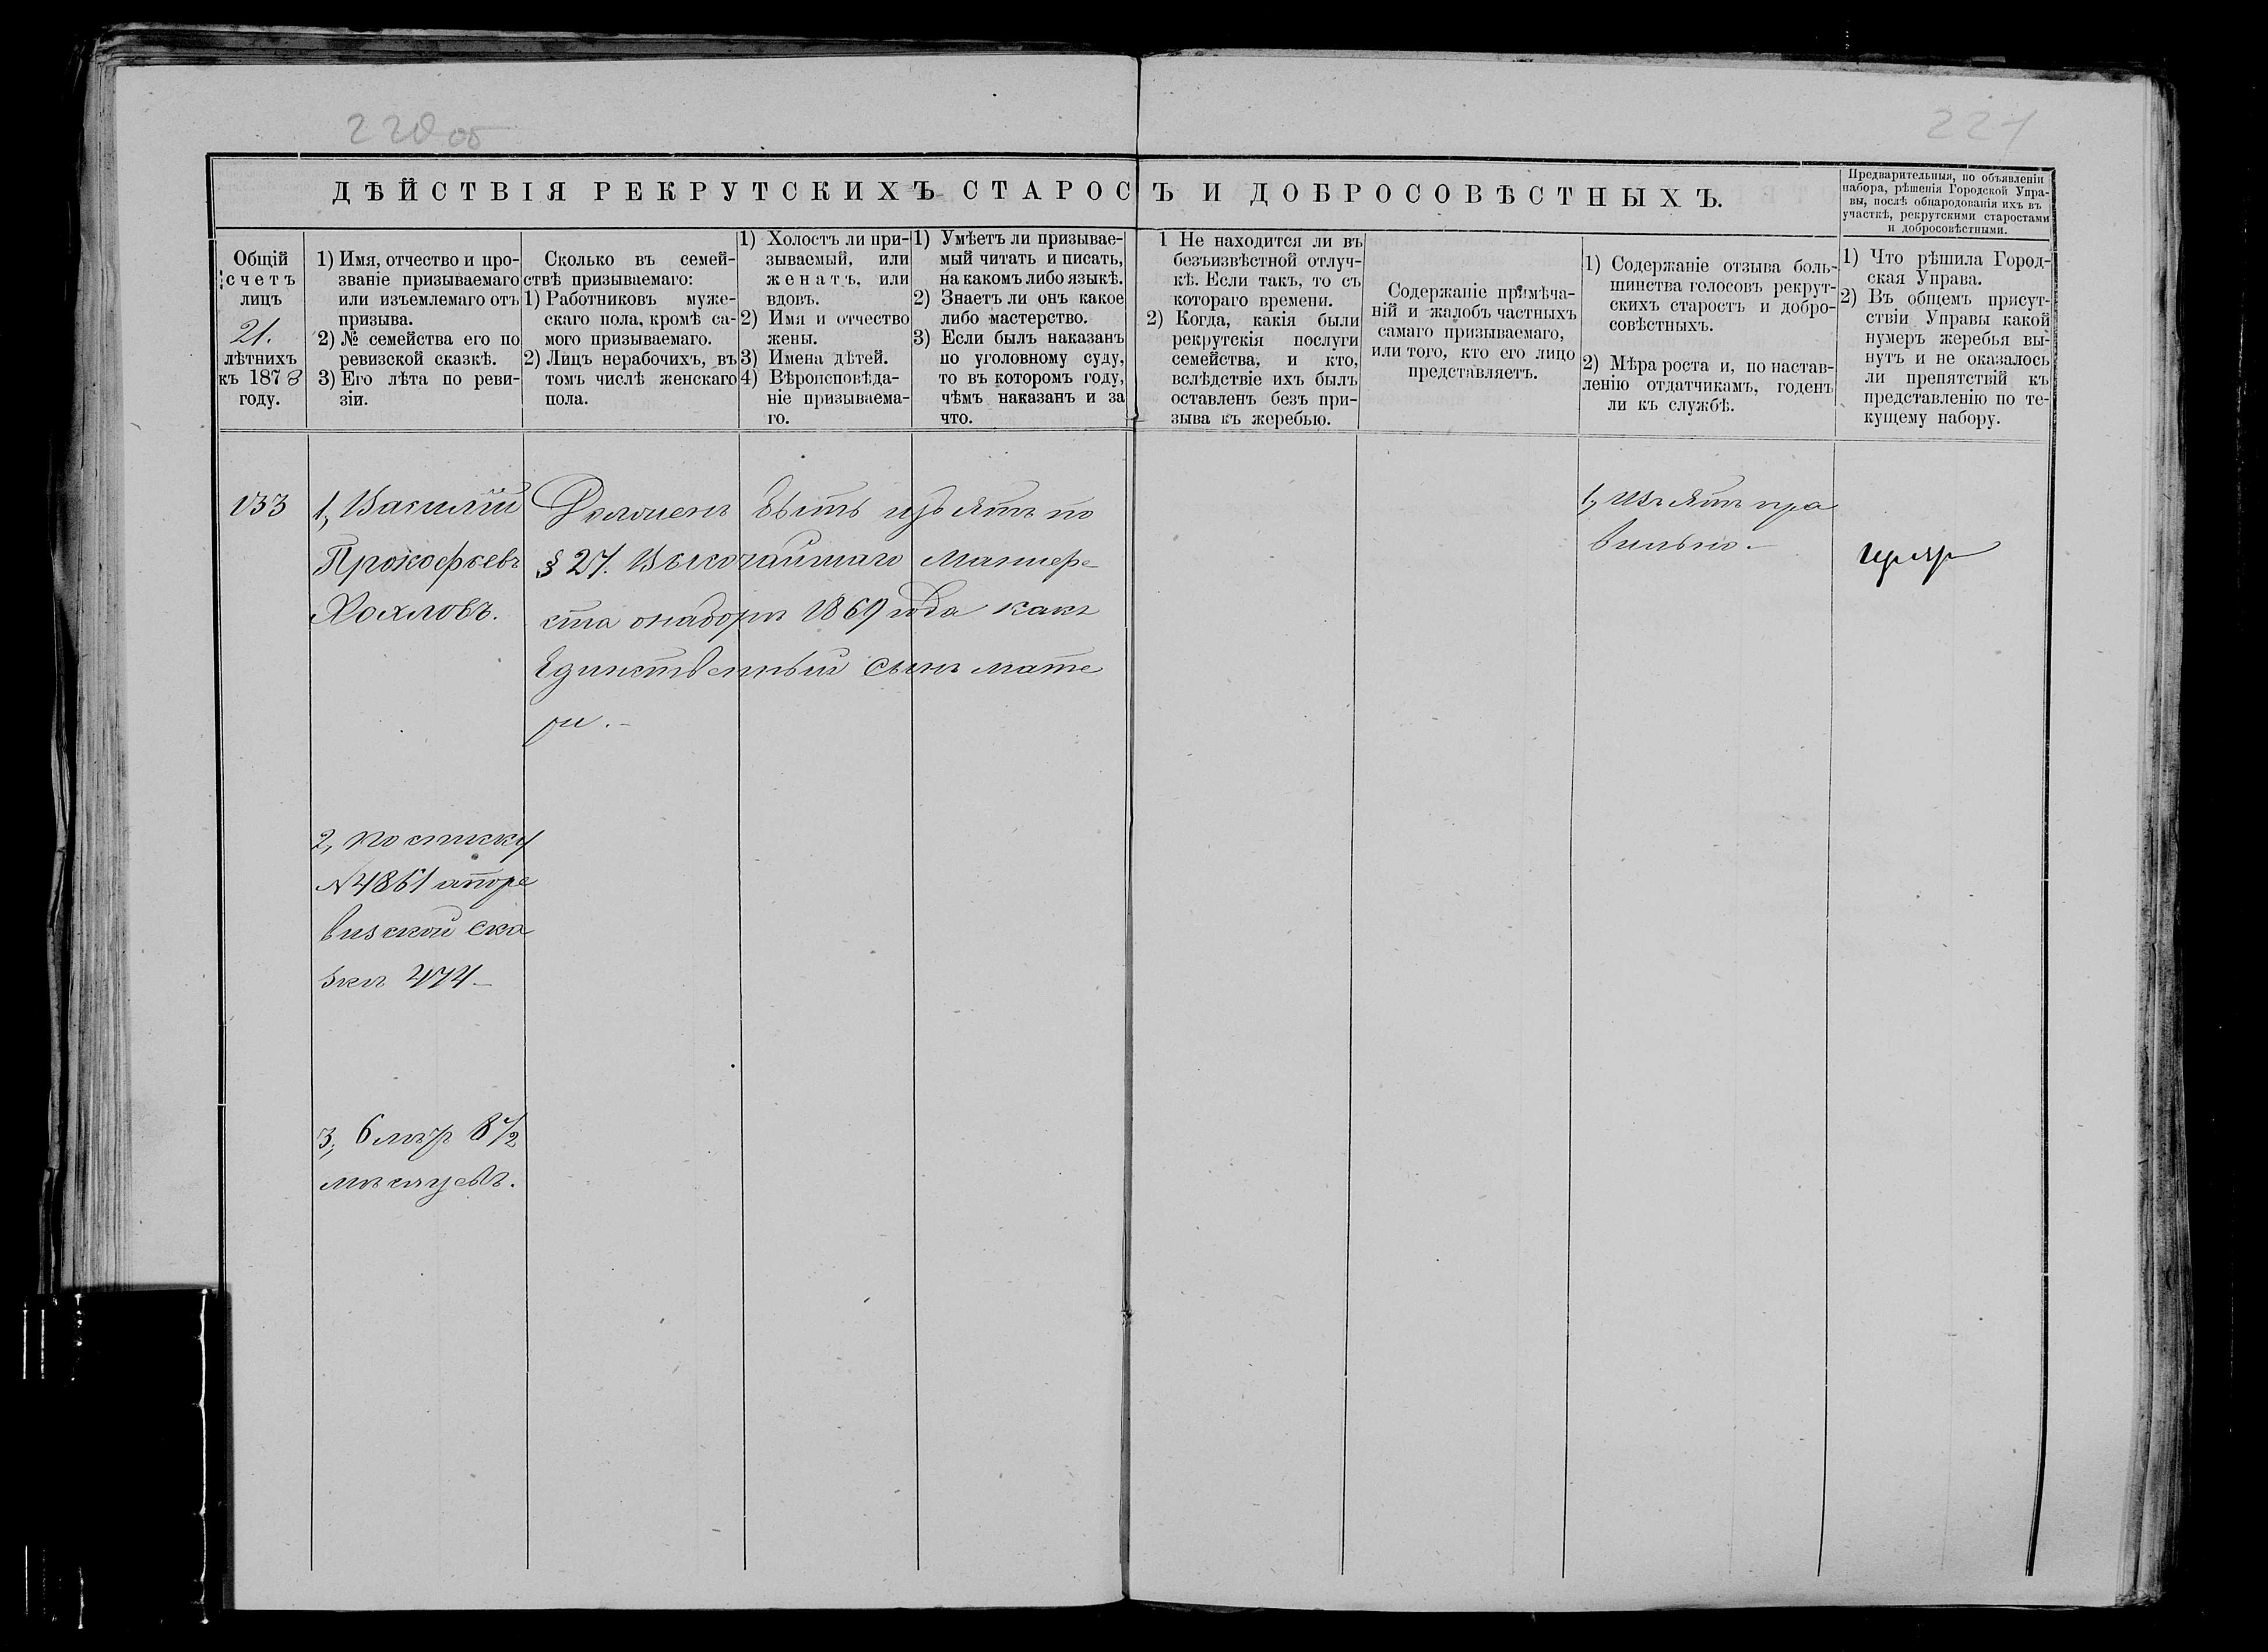 220 об
221
ДѢЙСТВІЯ РЕКРУТСКИХЪ СТАРОСТЪ И ДОБРОСОВѢСТНЫХЪ.
Предварительныя, по объявленіи
набора, рѣшенія Городской Упра-
вы, послѣ обнародованія ихъ въ
участкѣ, рекрутскими старостами
и добросовѣстными.
Общій
счетъ
лицъ
21.
лѣтнихъ
къ 1878
году.
1) Имя, отчество и про-
званіе призываемаго
или изъемлемаго отъ
призыва.
2) № семейства его по
ревизской сказкѣ.
3) Его лѣта по реви-
зіи.
Сколько въ семей-
ствѣ призываемаго:
1) Работниковъ муже-
скаго пола, кромѣ са-
мого призываемаго.
2) Лицъ нерабочихъ, въ
томъ числѣ женскаго
пола.
1) Холостъ ли при-
зываемый, или
женатъ, или
вдовъ.
2) Имя и отчество
жены.
3) Имена дѣтей.
4) Вѣроисповѣда-
ніе призываема-
го.
1) Умѣетъ ли призывае-
мый читать и писать,
на какомъ либо языкѣ.
2) Знаетъ ли онъ какое
либо мастерство.
3) Если былъ наказанъ
по уголовному суду,
то въ которомъ году,
чѣмъ наказанъ и за
что.
1 Не находится ли въ
безъизвѣстной отлуч-
кѣ. Если такъ, то съ
котораго времени.
2) Когда, какія были
рекрутскія послуги
семейства, и кто,
вслѣдствіе ихъ былъ
оставленъ безъ при-
зыва къ жеребью.
Содержаніе примѣча-
ній и жалобъ частныхъ
самаго призываемаго,
или того, кто его лицо
представляетъ.
1) Содержаніе отзыва боль-
шинства голосовъ рекрут-
скихъ старостъ и добро-
совѣстныхъ.
2) Мѣра роста и, по настав-
ленію отдатчикамъ, годенъ
ли къ службѣ.
1) Что рѣшила Город-
ская Управа.
2) Въ общемъ присут-
ствіи Управы какой
нумеръ жеребья вы-
нутъ и не оказалось
ли препятствій къ
представленію по те-
кущему набору.
133
1, Василій
Прокофьевъ
Хохловъ.
2, по списку
№ 4861 апоре
визской ска
зкѣ 474
3, 6 лѣтъ 8 1/2
мѣсяцевъ.
Должен быть изъятъ по
§ 27. Высочайшаго Манифе-
ста о наборѣ 1869 года какъ
единственный сынъ мате
ри.
1, Изъятъ пра
вильно.